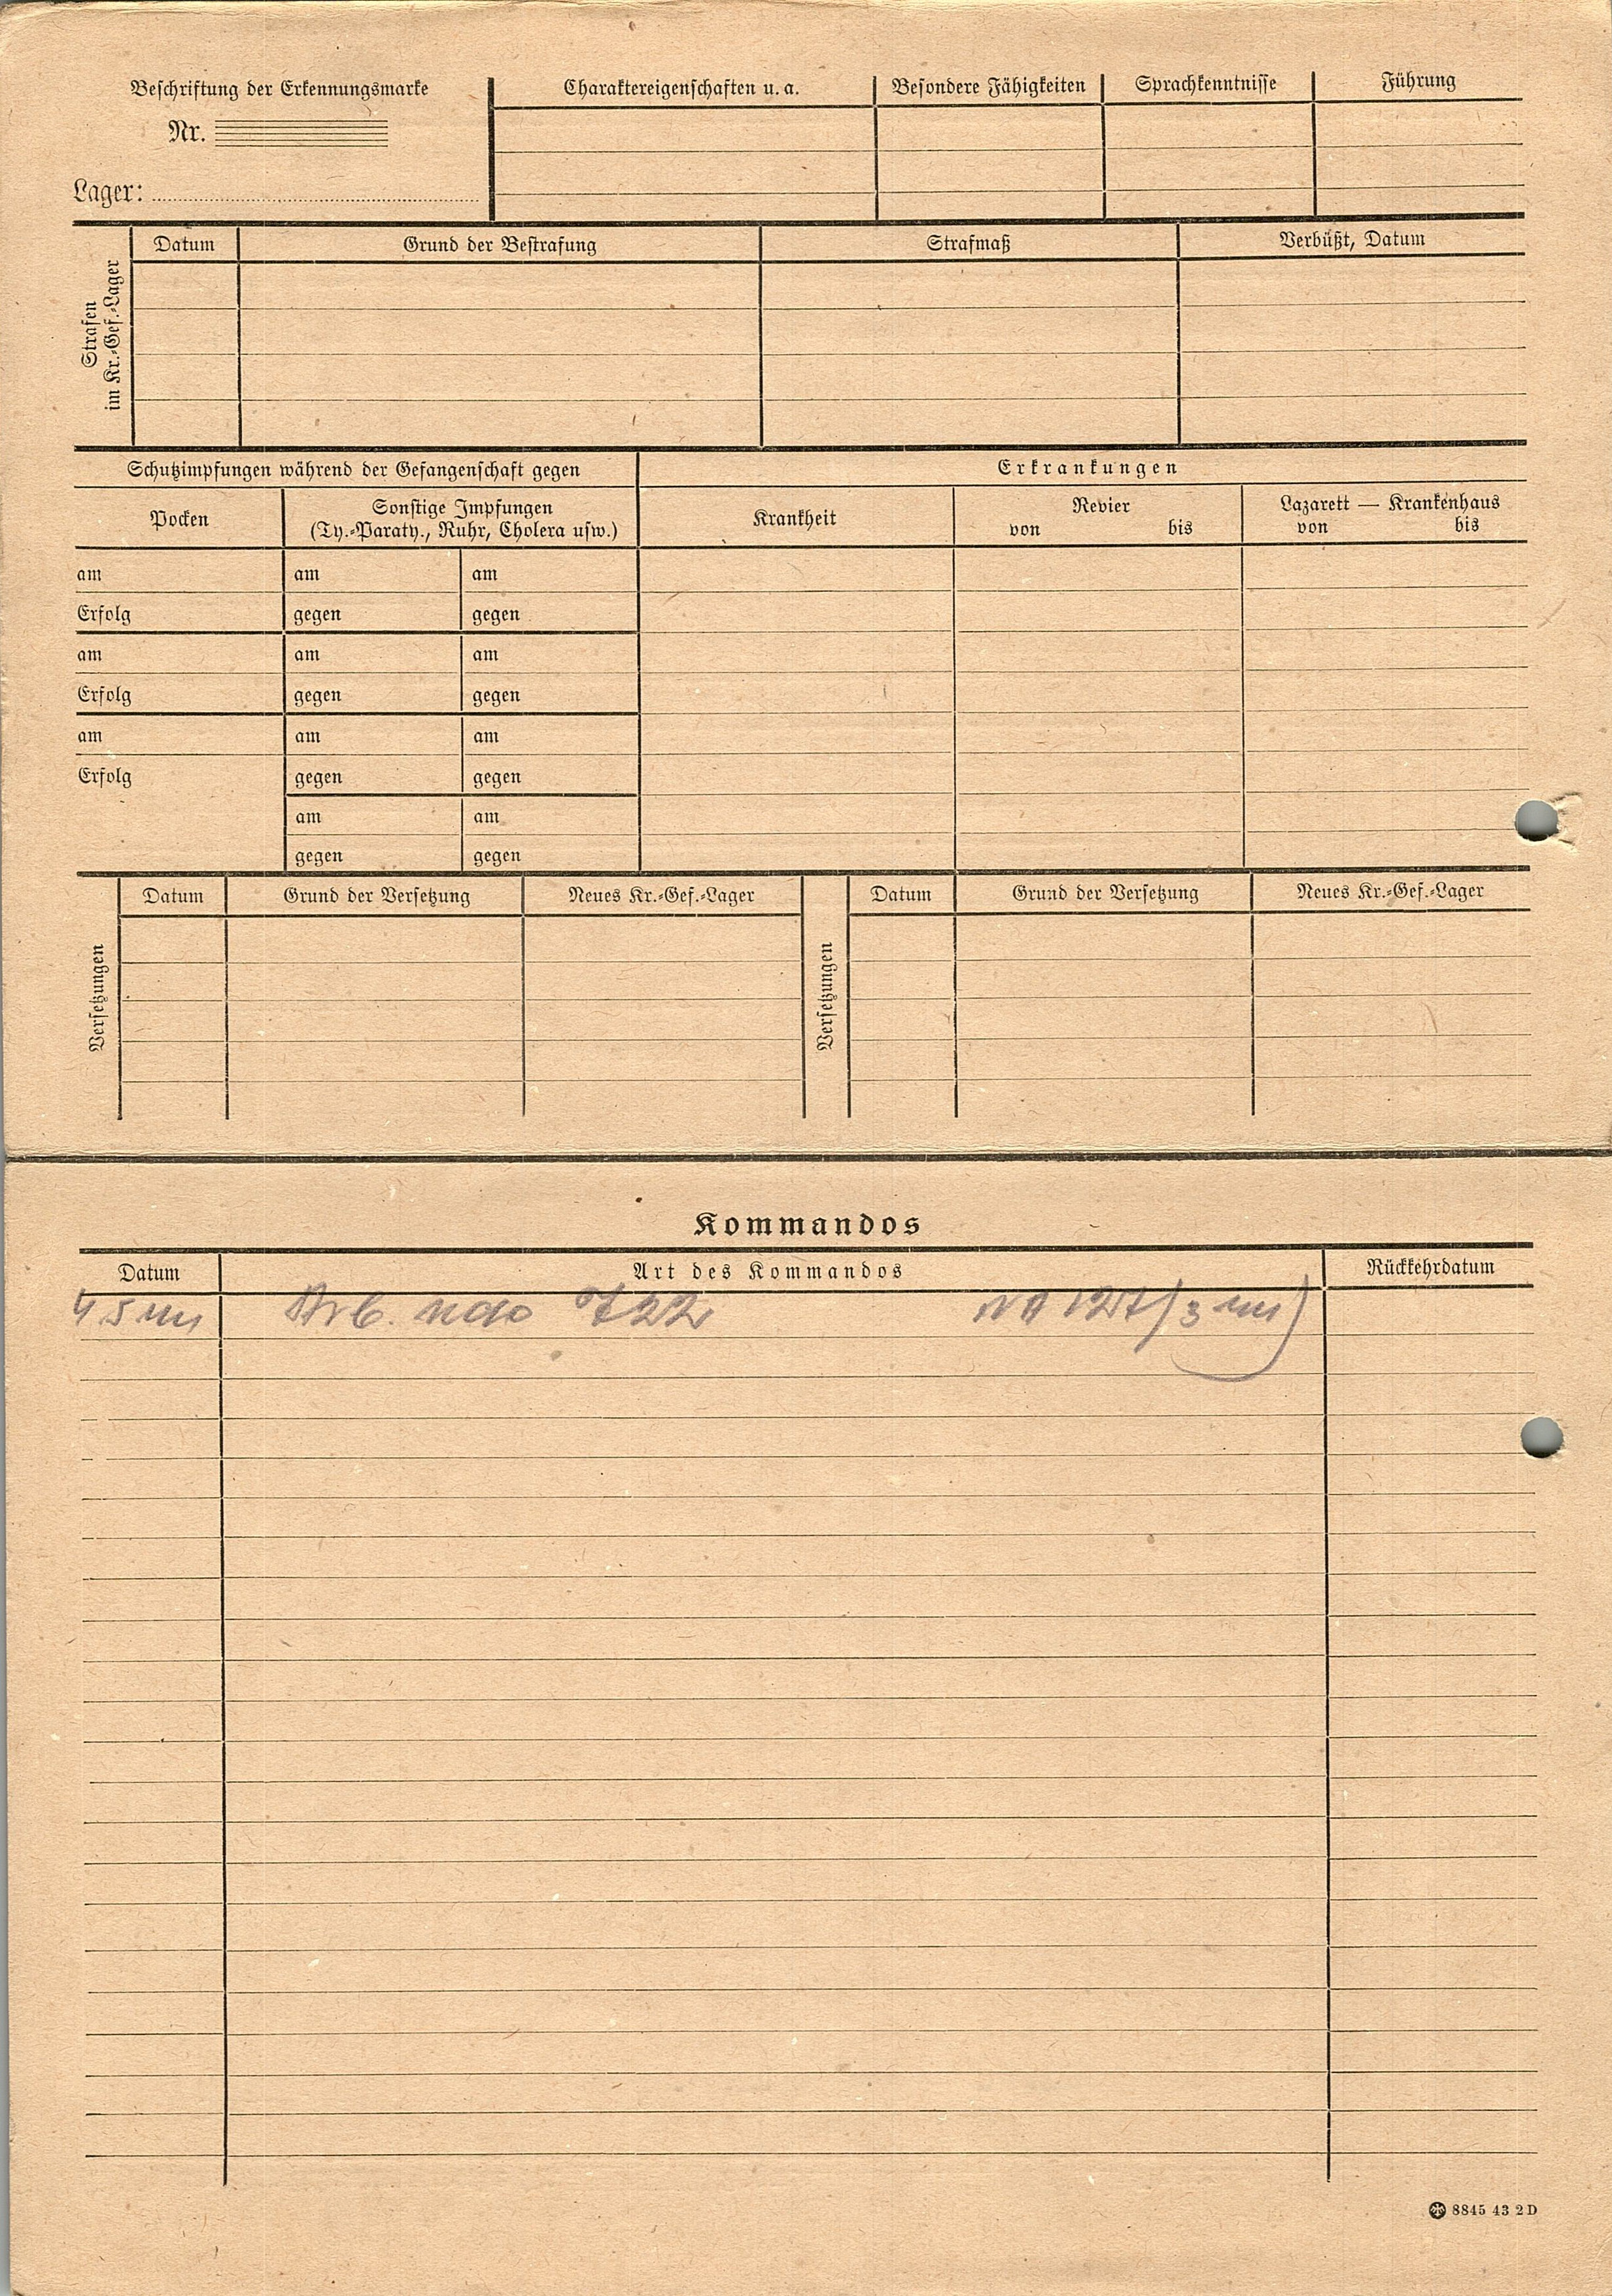 Beschriftung der Erkennungsmarke
Nr.
Lager:
Charaktereigenschaften u. a.
Besondere Fähigkeiten
Sprachkenntnisse
Führung
Strafen
im Kr.-Gef.-Lager
Datum
Grund der Bestrafung
Strafmaß
Verbüßt, Datum
Schutzimpfungen während der Gefangenschaft gegen
Erkrankungen
Pocken
Sonstige Impfungen
(Ty.-Paraty., Ruhr, Cholera usw.)
Krankheit
Revier
von bis
Lazarett — Krankenhaus
von bis
am am am
Erfolg gegen gegen
am am am
Erfolg gegen gegen
am am am
Erfolg gegen gegen
am am
gegen gegen
Versetzungen
Datum Grund der Versetzung Neues Kr.-Gef.-Lager
Versetzungen
Datum Grund der Versetzung Neues Kr.-Gef.-Lager
Kommandos
Datum Art des Kommandos Rückkehrdatum
Arb. 722
8845 43 2 D